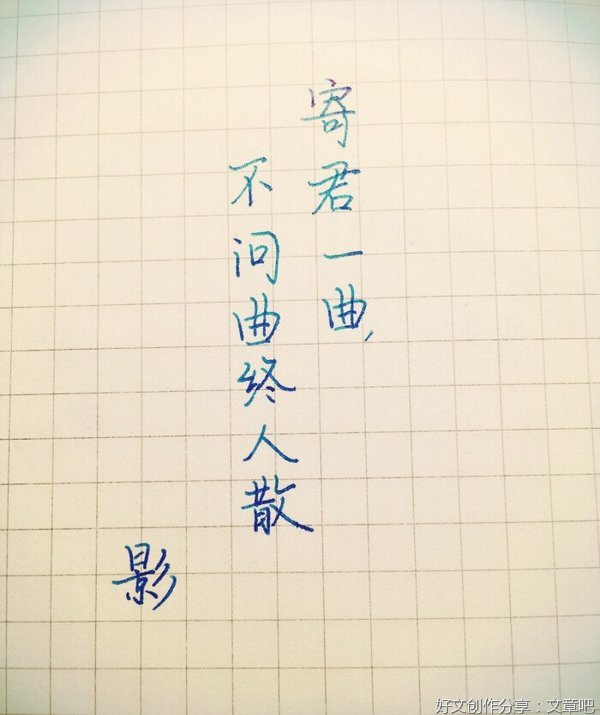 寄君一曲,
不问曲终人散
影
好文创作分享：文章吧